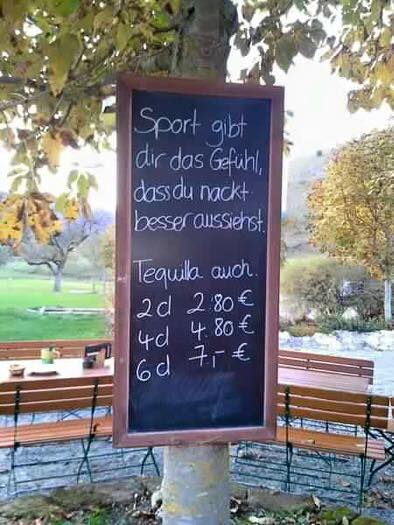 Sport gibt
dir das Gefühl,
dass du nackt
besser aussiehst.
Tequilla auch.
2d 2.80 €
4d 4.80 €
6d 7,- €